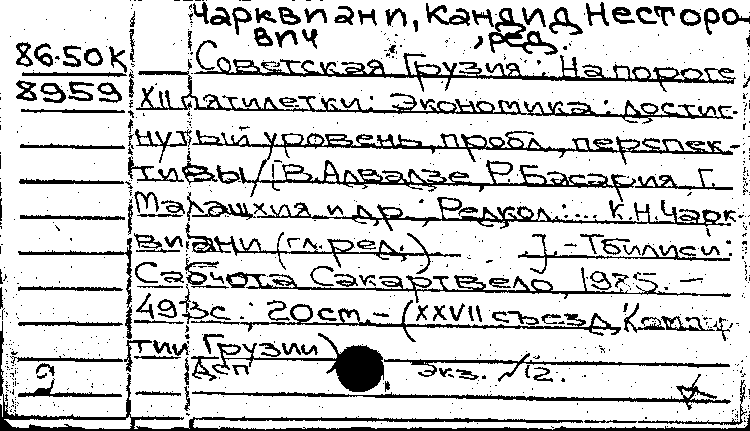 Чарквиани, Кандид Несторо-
вич , ред.
86-50К Советская Грузия: На пороге
8959 XII пятилетки: Экономика: достиг-
нутый уровень, пробл., перспек-
тивы/[В.Алвадзе, Р.Басария, Г.
Малашхия и др.; Редкол.:... К.Н.Чарк-
виани (гл. ред.) ].-Тбилиси:
Сабчота Сакартвело, 1985.-
493с.; 20см.-(XXVII съезд Компар
тии Грузии)
Дсп Экз. №12.